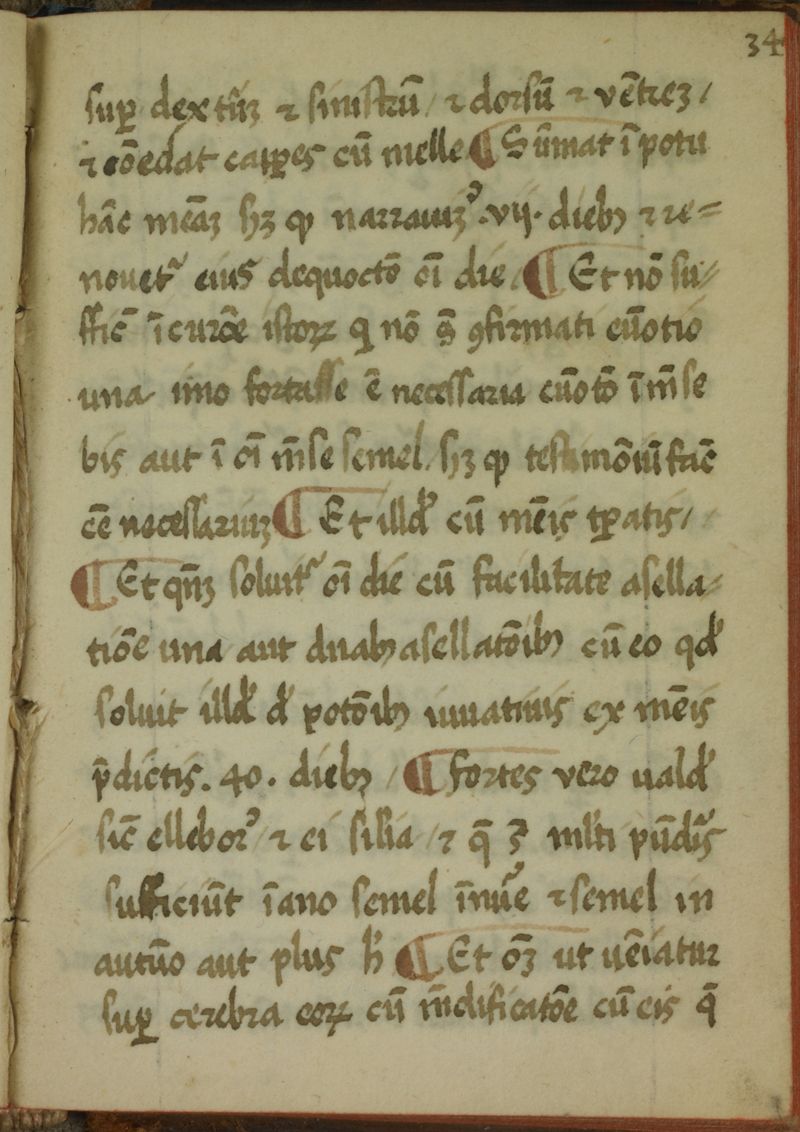 34
suꝑ dextrūꝫ ⁊ sinistrū / ⁊ dorsū ⁊ vētreꝫ /
⁊ cōedat capꝑes cū melle ¶ Sūmat ī potu
hāc meāꝫ hꝫ ꝙ narrauiꝫ⁹ .vij. dieb₉ ⁊ re=
novet᷑ eius dequoctō oī die / ¶ Et nō su/
ffic̄ ī curōe istoꝝ qi nō s̄t ꝯfirmati euōtio
una imo fortasse ē necessaria euōtō ī m̄se
bis aut ī oī m̄se semel. hꝫ ꝙ testimōiū fac̄
cē necessariuꝫ ¶ Et illđ cū mēis tꝑatis /
¶ Et qn̄ꝫ soluit᷑ oī die cū facilitate asella/
tiōe una aut duab₉ asellatōib₉ cū eo qđ
soluit illđ đ potōib₉ iuuatiuis ex mēis
p̄dictis . 40 . dieb₉ / ¶ fortes vero ualđ
sic̄ ellebor⁹ ⁊ ei silia / ⁊ q̄ mlti
sufficiūt ī ano semel ī ue᷑e ⁊ semel in
autūo aut plus h ¶ Et oꝫ ut ueniatur
suꝑ cerebra eoꝝ cū m̄dificatōe cū eis q̄